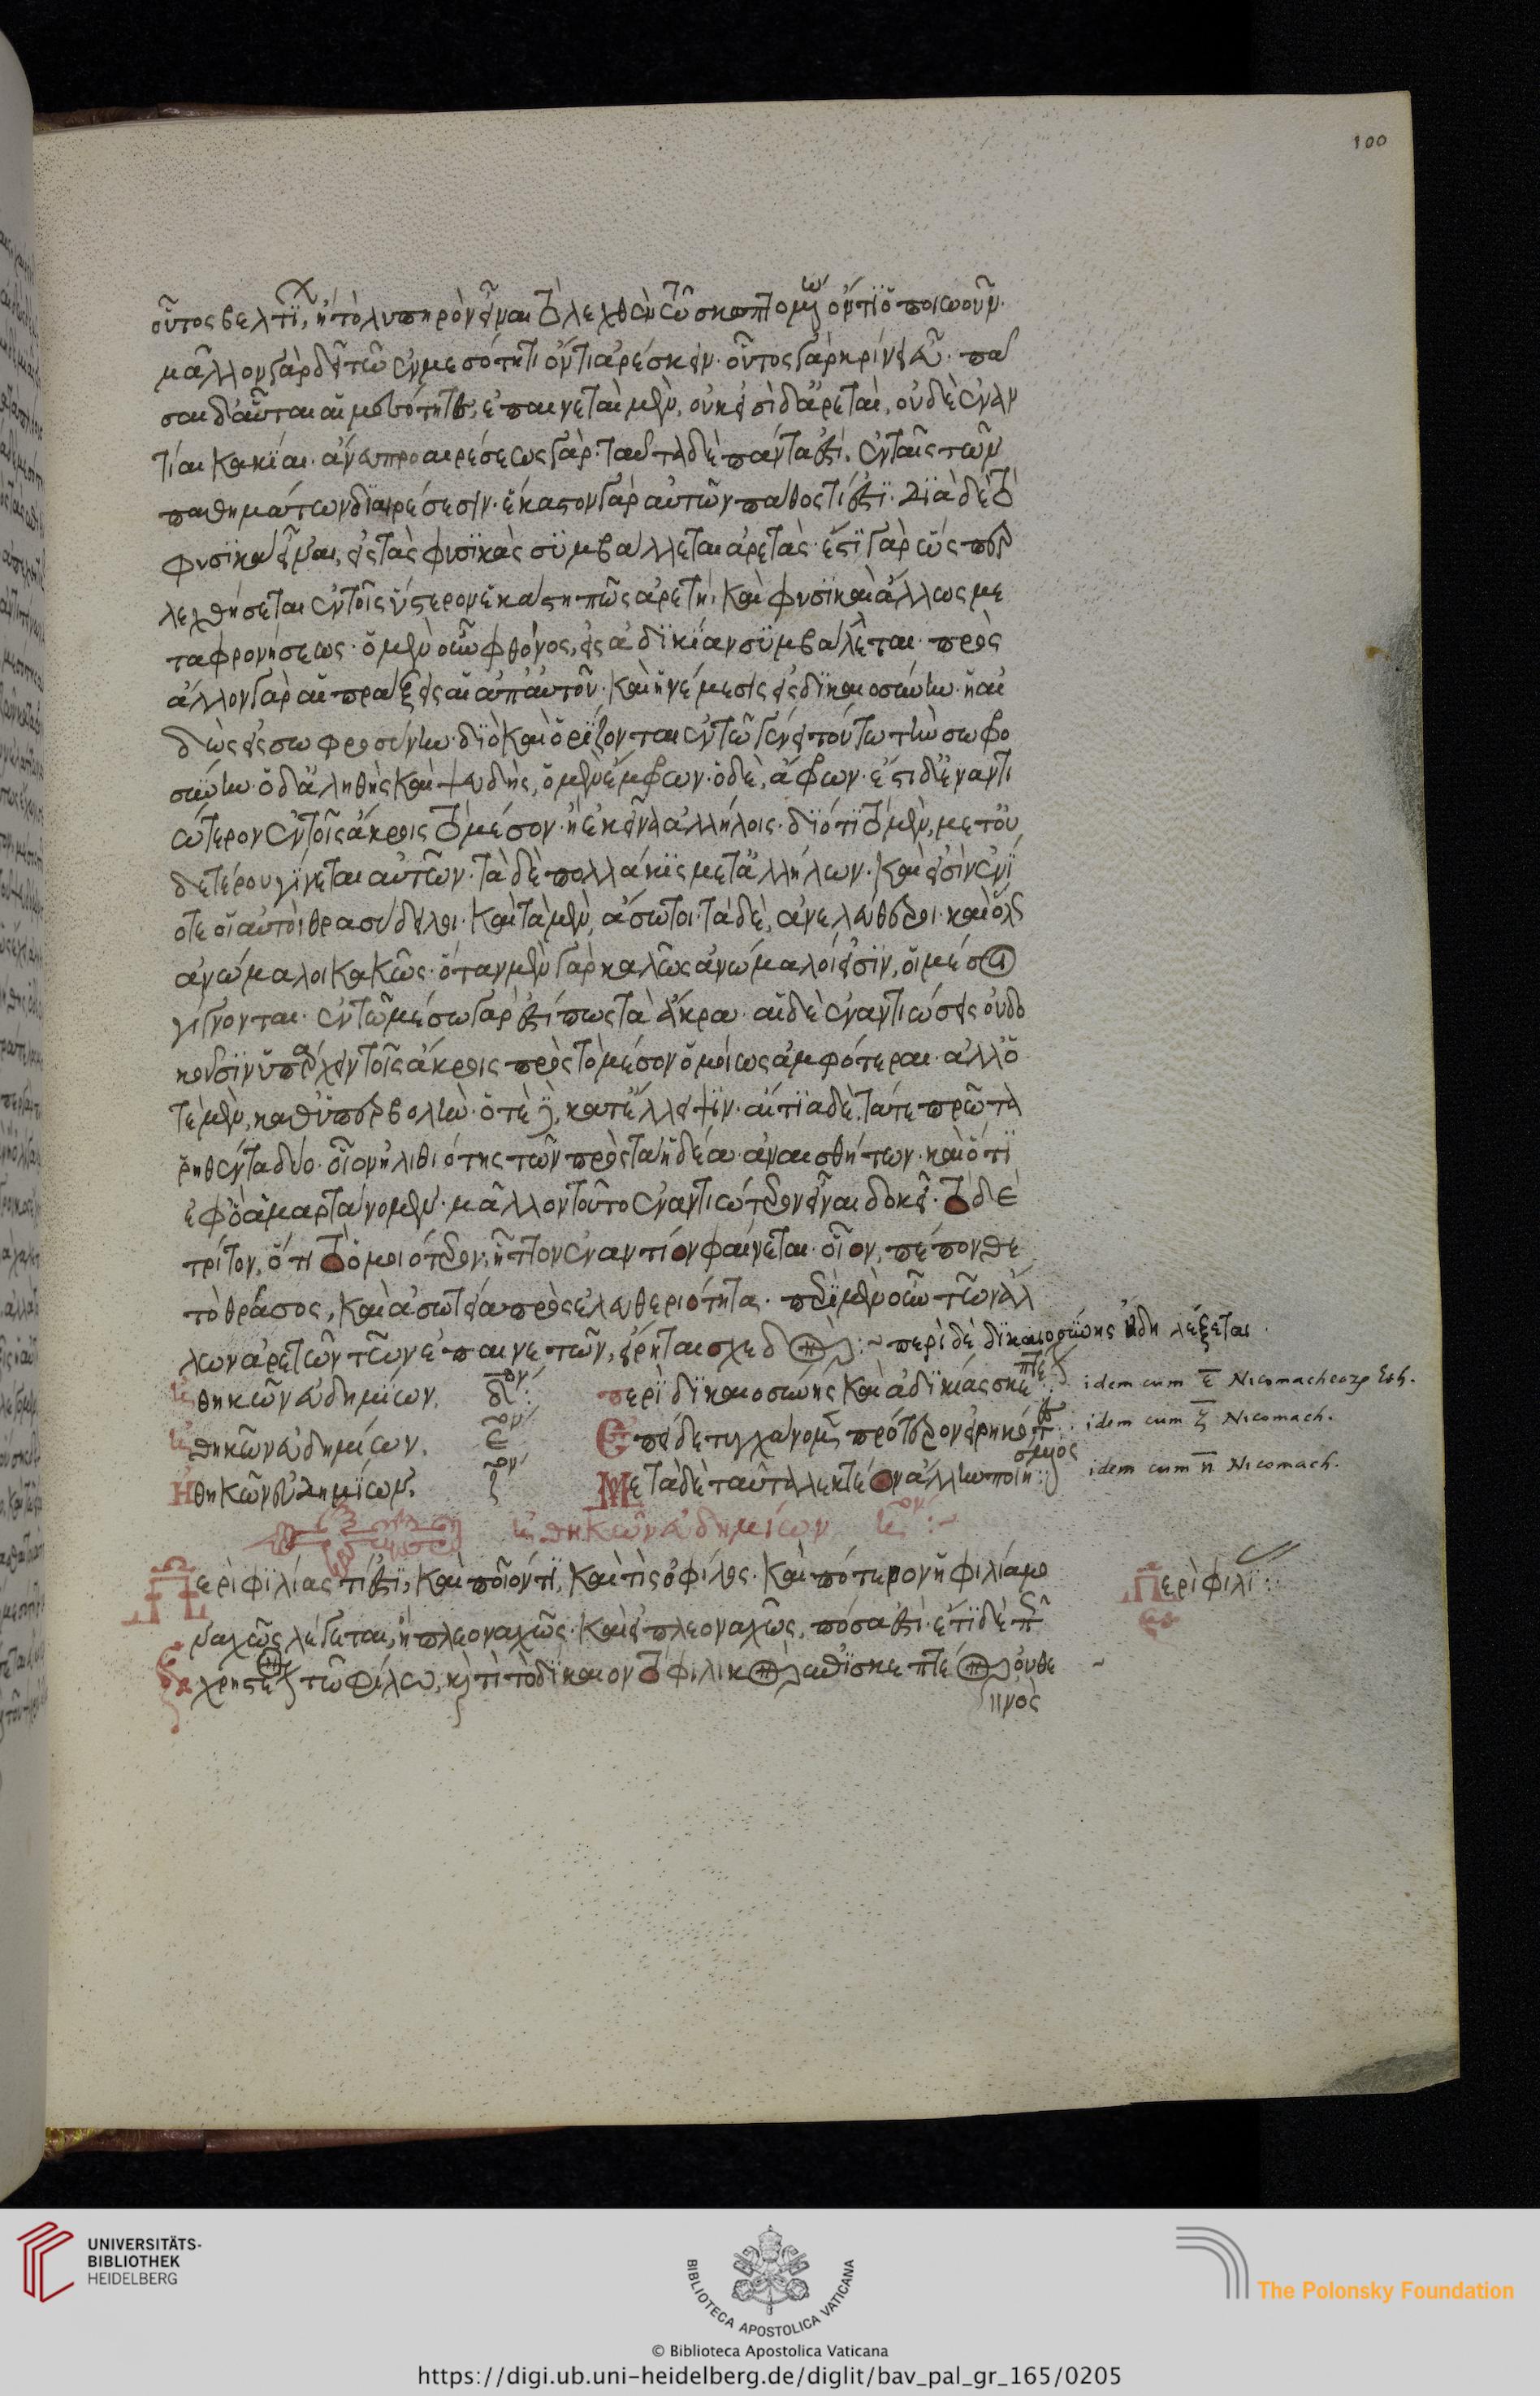 100
οὗτος βελτίων, ἢ τὸ λυπηρὸν εἶναι τὸ λεχθὲν τῷ σκωπτομένῳ ὄντι ὁποιωοῦν·
μᾶλλον γὰρ δεῖ τῷ ἐν μεσότητι ὄντι ἀρέσκειν· οὗτος γὰρ κρίνει εὖ· πᾶ
σαι δ' αὗται αἱ μεσότητες, ἐπαινεταὶ μὲν, οὐκ εἰσὶ δ' ἀρεταὶ, οὐδὲ ἐναν
τίαι κακίαι· ἄνευ προαιρέσεως γάρ· ταῦτα δὲ πάντα ἐστὶ, ἐν ταῖς τῶν
παθημάτων διαιρέσεσιν· ἕκαστον γὰρ αὐτῶν πάθος τί ἐστι· διὰ δὲ τὸ
φυσικὰ εἶναι, εἰς τὰς φυσικὰς συμβάλλεται ἀρετάς· ἔστι γὰρ ὥσπερ
λεχθήσεται ἐν τοῖς ὕστερον ἑκάστη πῶς ἀρετὴ, καὶ φύσικαὶ ἄλλως με
τα φρονήσεως· ὁ μὲν οὖν φθόνος, εἰς ἀδικίαν συμβάλλεται· πρὸς
ἄλλον γὰρ αἱ πράξεις αἱ ἀπ' αὐτοῦ· καὶ ἡ νέμεσις εἰς δικαιοσύνην· ἡ αἰ
δὼς εἰς σωφροσύνην· διὸ καὶ ὁρίζονται ἐν τῷ γένει τούτῳ τὴν σωφρο
σύνην· ὁ δ' ἀληθὴς καὶ ψευδὴς, ὁ μὲν ἔμφρων· ὁ δὲ, ἄφρων· ἔστι δ' ἐναντι
ώτερον ἐν τοῖς ἄκροις τὸ μέσον· ἢ ἐκεῖνα ἀλλήλοις· διότι τὸ μὲν, μετ' οὐ
δετέρου γίνεται αὐτῶν· τὰ δὲ πολλάκις μετ' ἀλλήλων· καὶ εἰσὶν ἐνί
οτε οἱ αὐτοὶ θρασύδειλοι· καὶ τὰ μὲν, ἄσωτοι· τὰ δὲ, ἀνελεύθεροι· καὶ ὅλως
ἀνώμαλοι κακῶς· ὅταν μὲν γὰρ καλῶς ἀνώμαλοί εἰσιν, οἱ μέσοι
γίγνονται· ἐν τῷ μέσῳ γάρ ἐστί πως τὰ ἄκρα· αἱ δὲ ἐναντιώσεις οὐ δο
κοῦσιν ὑπάρχειν τοῖς ἄκροις πρὸς τὸ μέσον ὁμοίως ἀμφότεραι· ἀλλ' ὁ
τὲ μὲν, καθ' ὑπερβολὴν· ὁτὲ δὲ, κατ' ἔλλειψιν· αἴτια δὲ, τά τε πρῶτα
ῥηθέντα δύο· οἷον ἡλιθιότης τῶν πρὸς τὰ ἡδέα ἀναισθήτων· καὶ ὅτι
ἐφ' ὃ ἁμαρτάνομεν· μᾶλλον τοῦτο ἐναντιώτερον εἶναι δοκεῖ· τὸ δὲ
τρίτον, ὅτι τὸ ὁμοιότερον, ἧττον ἐναντίον φαίνεται· οἷον, πέπονθε
τὸ θράσος, καὶ ἀσωτεία πρὸς ἐλευθεριότητα· περὶ μὲν οὖν τῶν ἄλ
λων ἀρετῶν τῶν ἐπαινετῶν, εἴρηται σχεδὸν :~ περὶ δὲ δικαιοσύνης ἤδη λέξεται.
ἠθικῶν εὐδημίων. δ ον : περὶ δικαιοσύνης καὶ ἀδικίας σκεπτέον : idem cum ε̄ Nicomacheorum Eth.
ἠθικῶν εὐδημίων. ε ον Ἐπεὶ δὲ τυγχάνομεν πρότερον εἰρηκότες : idem cum ζ̄ Nicomach.
Ἠθικῶν εὐδημίων. ϛ ον Μετὰ δὲ ταῦτα λεκτέον ἄλλην ποιησαμένους : idem cum η̄ Nicomach.
ἠθικῶν εὐδημίων ον :~
Περὶ φιλίας τί ἐστι, καὶ ποῖόν τι, καὶ τίς ὁ φίλος· καὶ πότερον ἡ φιλία μο Περὶ φιλίας :
ναχῶς λέγεται, ἢ πλεοναχῶς· καὶ εἰ πλεοναχῶς, πόσα ἐστί· ἔτι δὲ πῶς
χρηστέον τῷ φίλῳ, καὶ τί τὸ δίκαιον τὸ φιλικὸν ἐπισκεπτέον οὐθε
νὸς
UNIVERSITÄTS-
BIBLIOTHEK
HEIDELBERG
BIBLIOTECA APOSTOLICA VATICANA
The Polonsky Foundation
© Biblioteca Apostolica Vaticana
https://digi.ub.uni-heidelberg.de/diglit/bav_pal_gr_165/0205